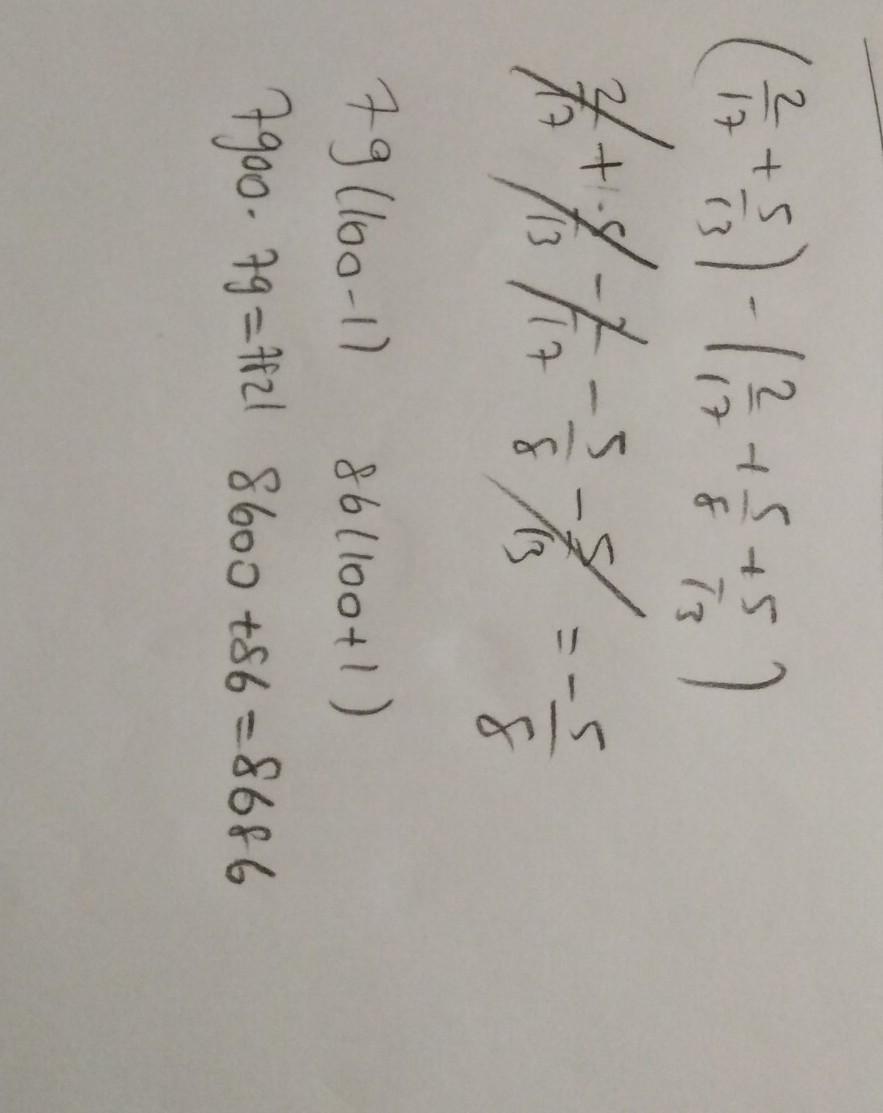 (2/17 + 5/13) - (2/17 + 5/8 + 5/13)
2/17 + 5/13 - 2/17 - 5/8 - 5/13 = - 5/8
79(100-1) 86(100+1)
7900. 79=7821 8600+86=8686